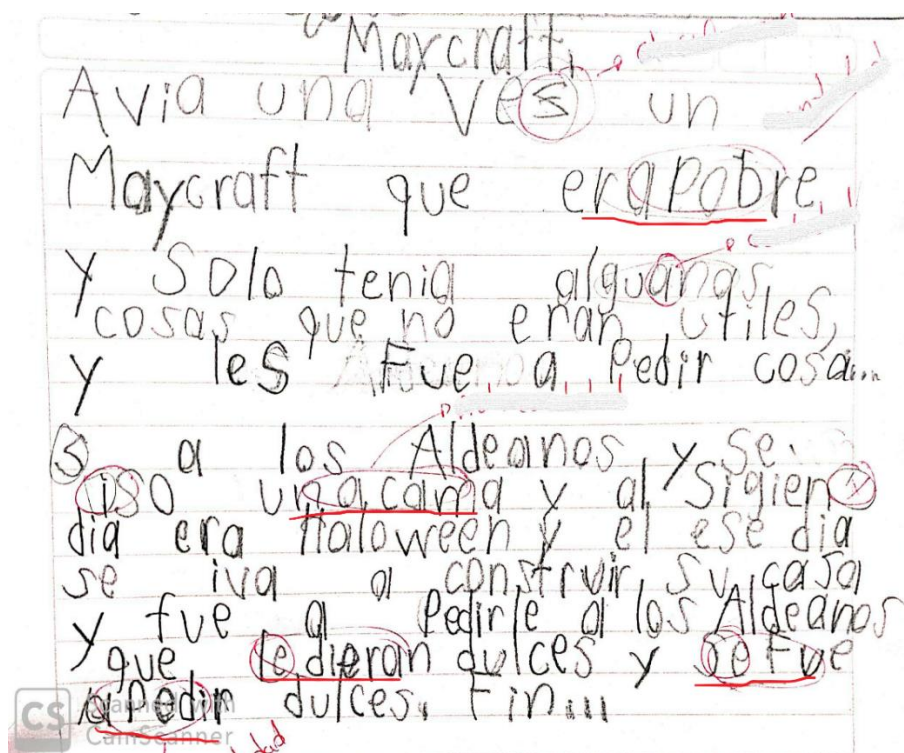 Maycraft.
Avia una ves un
Maycraft que erapobre
y solo tenia alguanas
cosas que no eran utiles,
y les Fue a Pedir cosa...
s a los Aldeanos y se
iso unacama y al sigien
dia era Haloween y el ese dia
se iva a construir su casa
y fue a Pedirle a los Aldeanos
y que ledieran dulces y seFue
aPedir dulces. Fin...
CS Scanned with
CamScanner